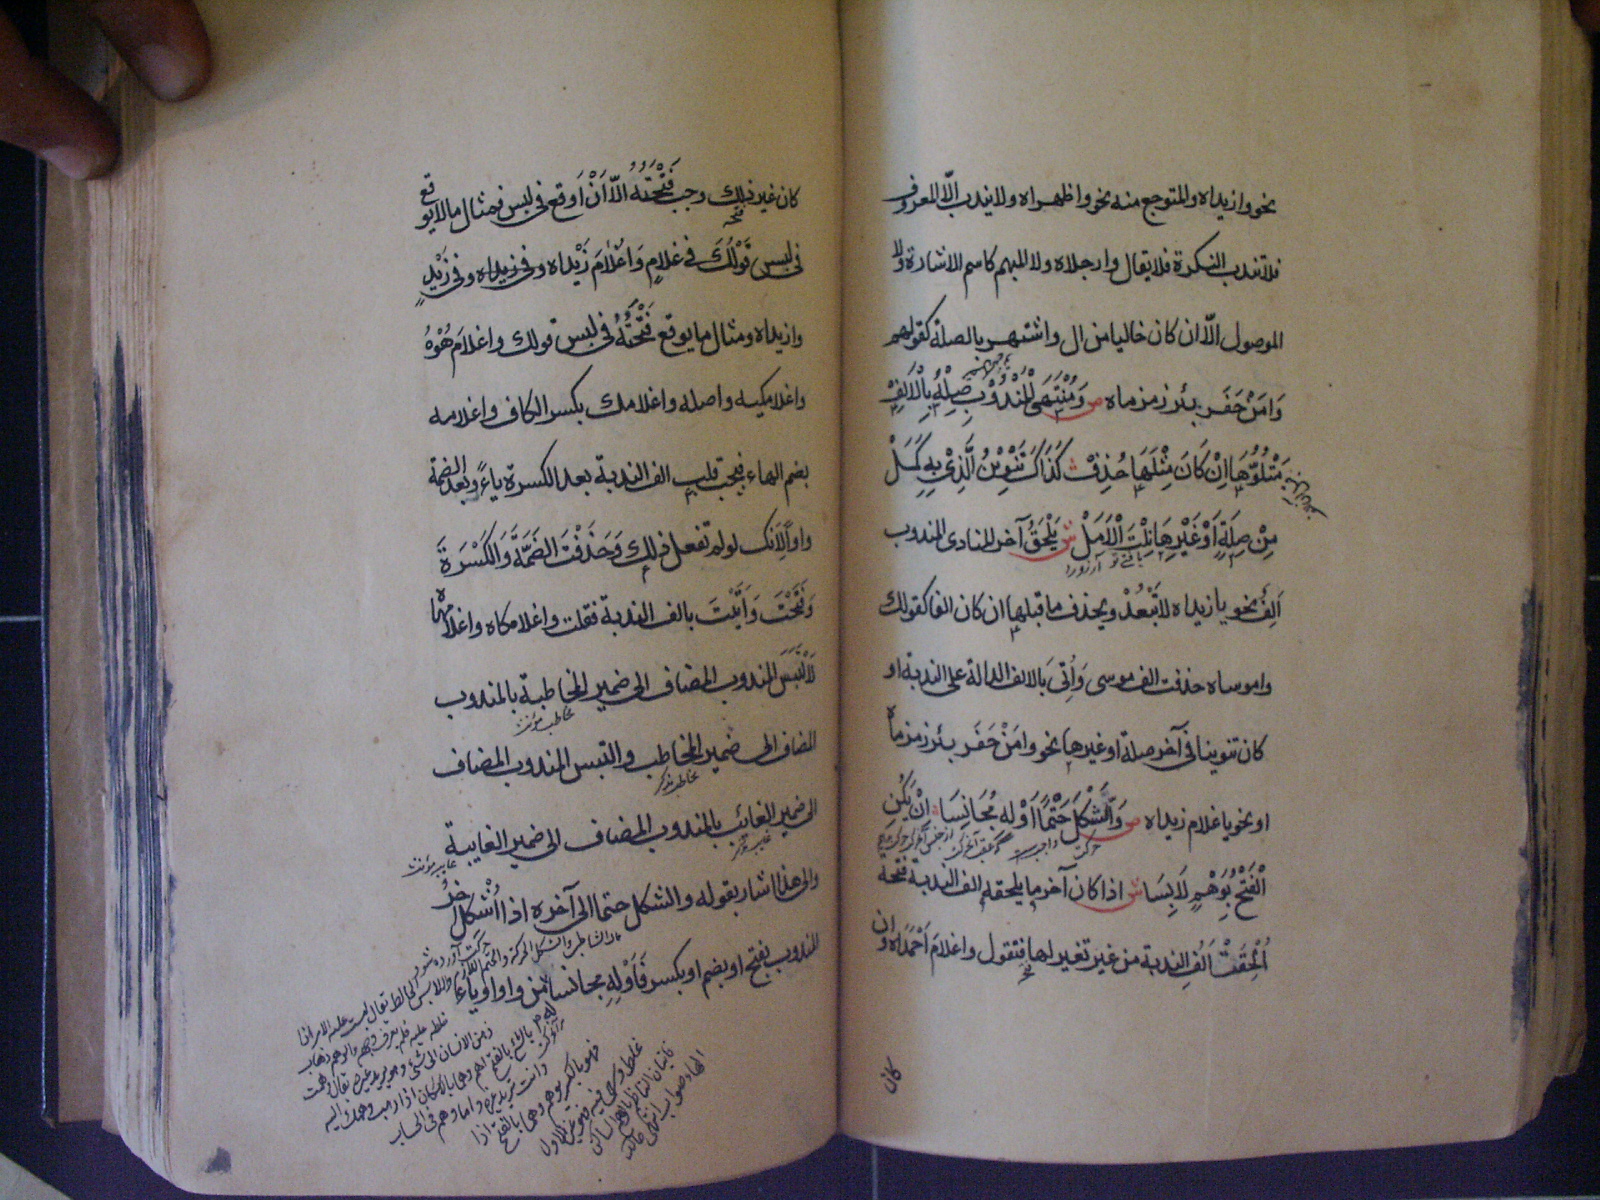 نحو وازيداه والمتوجع منه نحو واظهراه ولا يندب الّا المعروف
فلا تندب النكرة فلا يقال وارجلاه ولا المبهم كاسم الاشارة ولا
الموصول الّا ان كان خاليا من ال واشتهر بالصلة كقولهم
وَامَنْ حَفَر بئر زمزماه ص وَمُنْتَهَى الْمَنْدُوْبِ صِلْهُ بِالْاَلِفْ
مَتْلُوُّهَا اِنْ كَانَ مِثْلَهَا حُذِفْ كَذَاكَ تَنْوِيْنُ الَّذِيْ بِهِ كَمَلْ
مِنْ صِلَةٍ اَوْ غَيْرِهَا نِلْتَ الْاَمَلْ ش يَلْحَقُ آخر المنادى المندوب
اَلِفٌ نحو يا زيداه لا تَبْعُدْ ويحذف ما قبلها ان كان الفا كقولك
واموساه حذفت الف موسى وَاُتِىَ بالالف الدالة على الندبة او
كان تنوينا فى آخر صلة او غيرها نحو وامَنْ حَفَر بئر زمزماه
او نحو يا غلام زيداه ص وَالشَّكْلَ حَتْمًا اَوْلِهِ مُجَانِسًا اِنْ يَكُنِ
الْفَتْحُ بِوَهْمٍ لَابِسًا ش اذا كان آخر ما يلحقه الف الندبة فتحة
اُلْحِقَتْ اَلِفُ الندبة من غير تغير لها فتقول واغلامَ اَحْمَدَاه وان
كان
كان غير ذلك وجب فَتْحَتُهُ الّا اَنْ اَوقع فى لبس فمثال ما لا يوقع
فى لبس قَوْلُكَ فى غلامِ وَاغُلَامَ زَيْداه وفى زيداه وفى زَيْدٍ
وازيداه ومثال ما يوقع فَتْحَتُهُ فى لبس قولك واغلامَهُوْهُ
واغلامكيه واصله واغلامك بكسر الكاف واغلامه
بضم الهاء فيجب قلب الف الندبة بعد الكسرة ياءً وبعد الضمة
واوًا لِاَنك لو لم تفعل ذلك وَحَذَفْتَ الضَمَّةَ وَالكَسْرَةَ
وَفَتَحْتَ وَاَتَيْتَ بالف الندبة فقلت واغلامكاه واغلامهاه
لَالْتَبَسَ المندوب المضاف الى ضمير المخاطبة بالمندوب
المضاف الى ضمير المخاطب والتبس المندوب المضاف
الى ضمير الغائب بالمندوب المضاف الى ضمير الغايبة
والى هذا اشار بقوله والشكل حتما الى آخره اذا اُشْكل آخرُ
المندوب بفتح او بضم او بكسر فَاَوْلِهِ مجانسا من واو او ياء